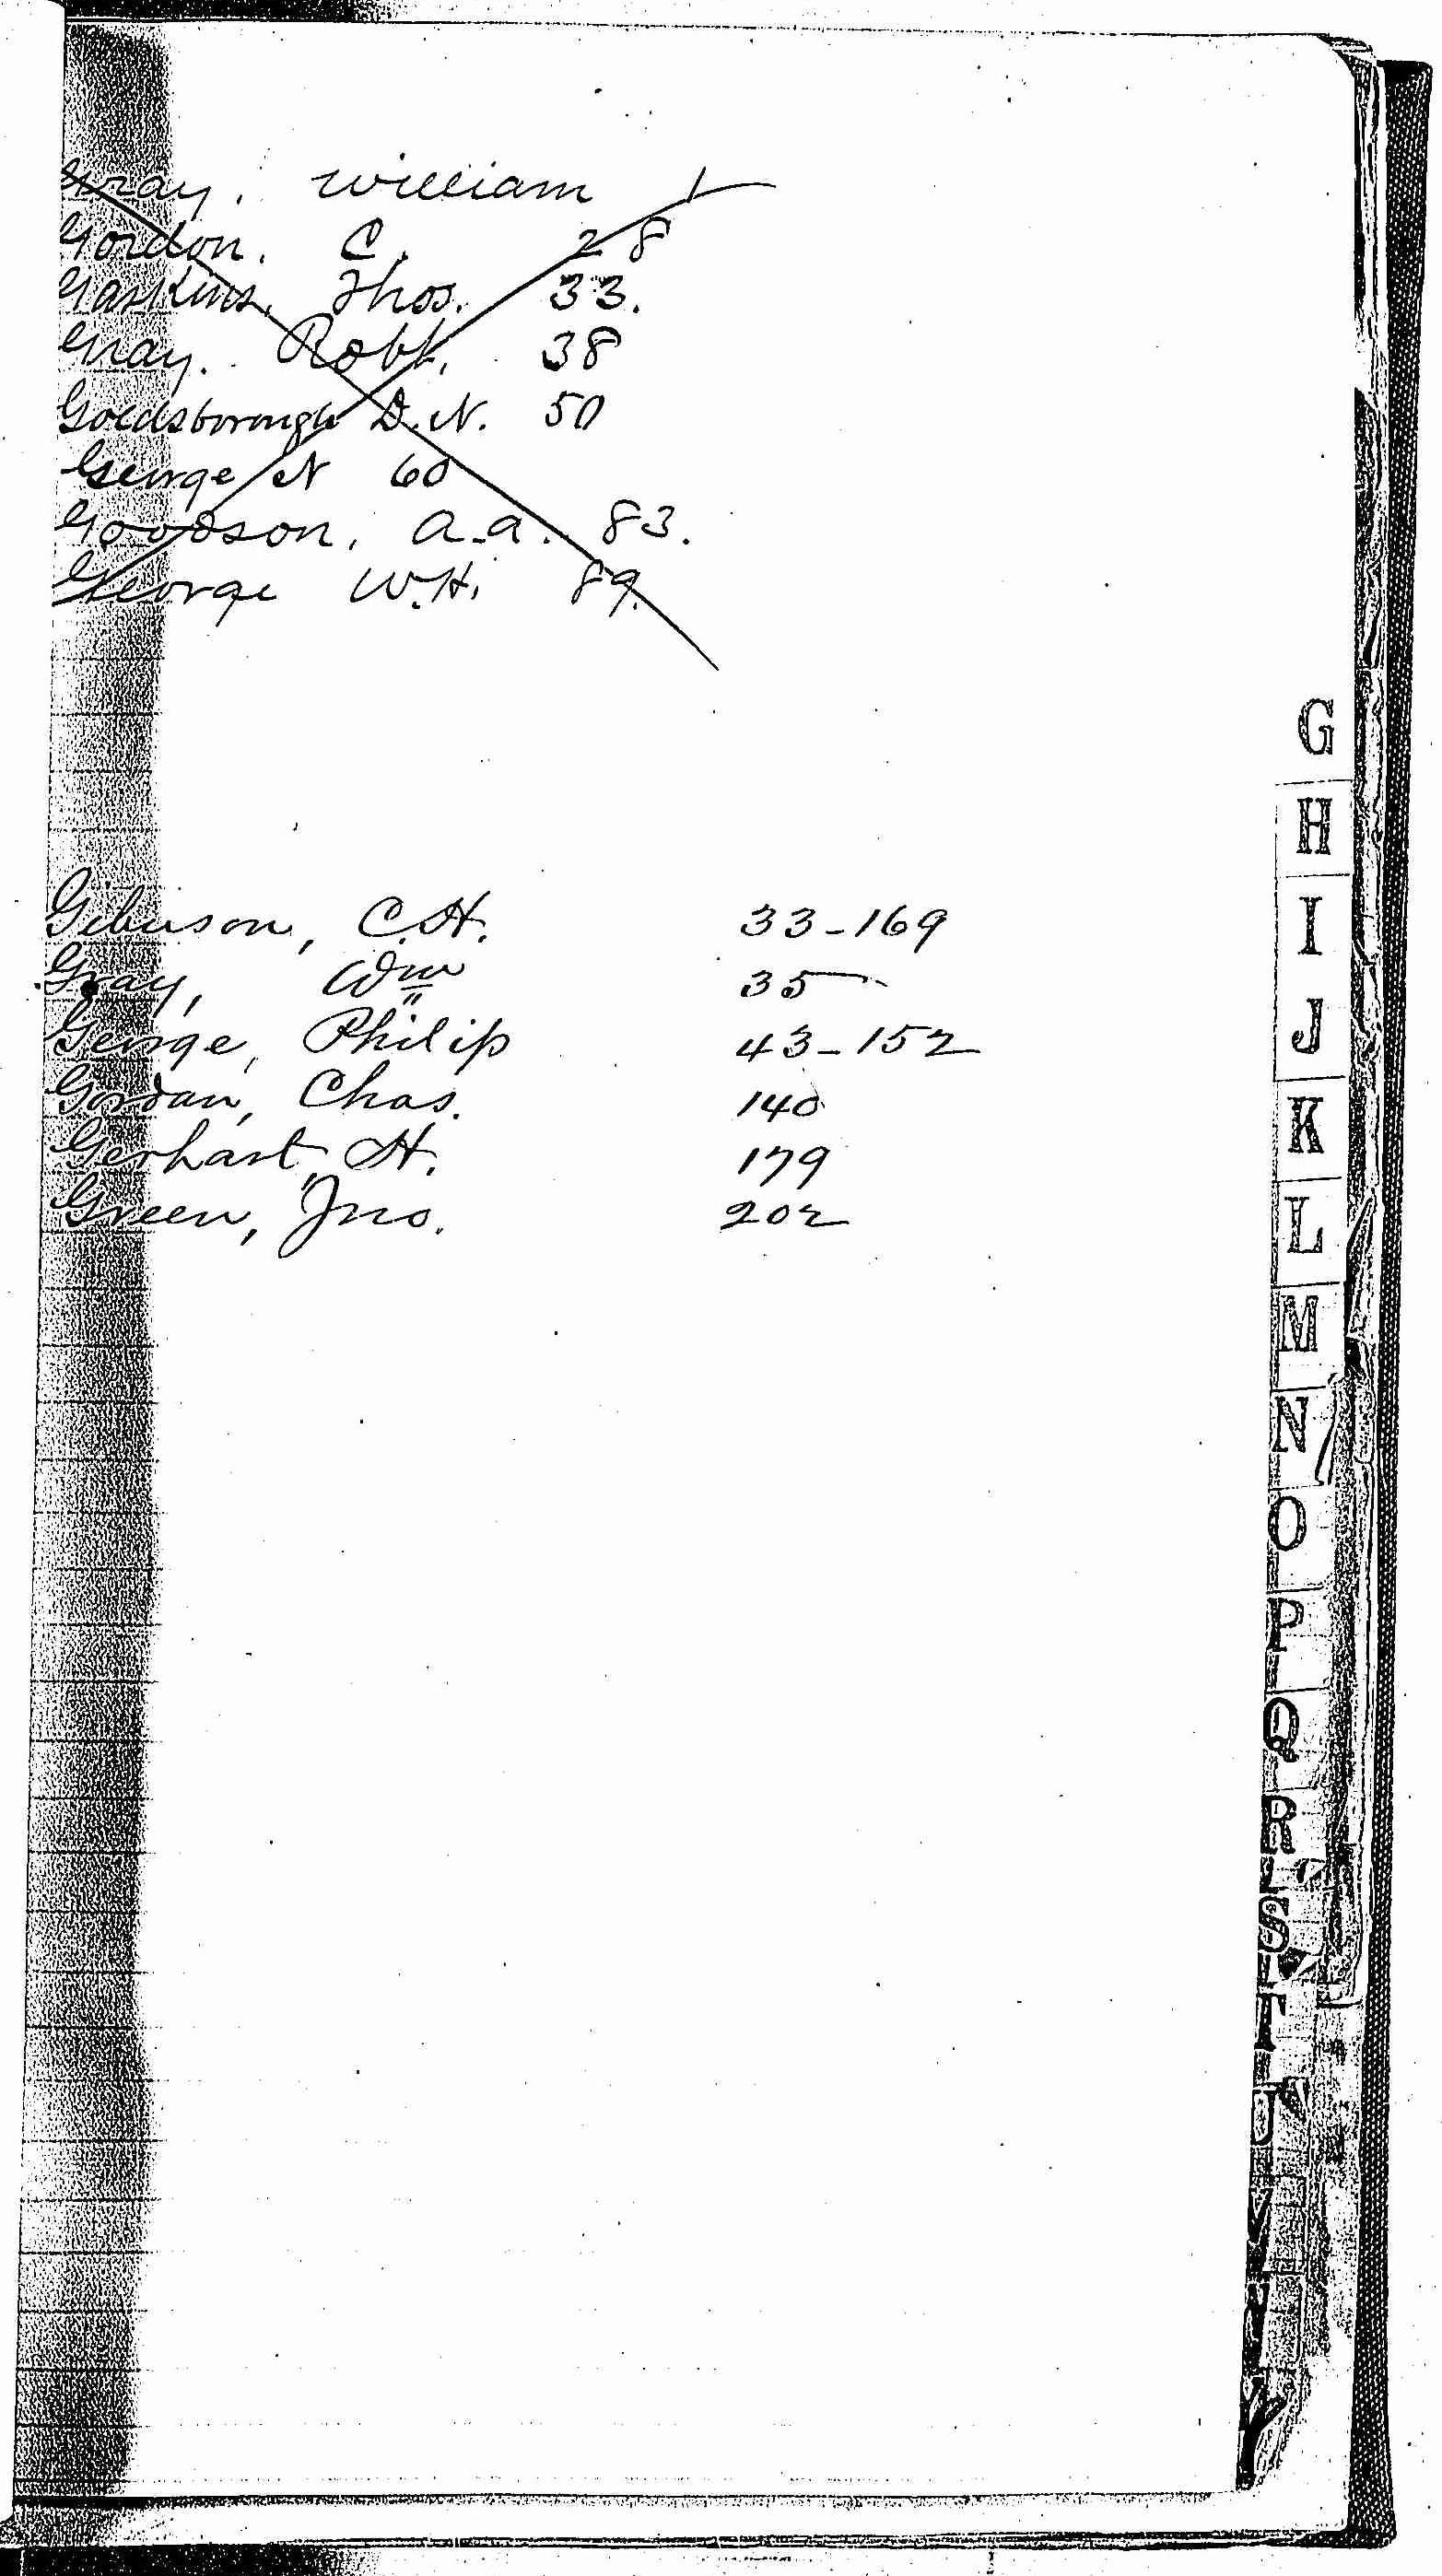 Gray. William 1
Gordon. C. 28
Gaskins. Thos. 33.
Gray. Robt. 38
Goldsborough D.N. 50
George N 60
Goodson. A.A. 83.
George W.H. 89.
Giberson, C.H. 33-169
Gray, Wm 35
George, Philip 43-152
Gordan, Chas. 140
Gerhart, H. 179
Green, Jno. 202
G
H
I
J
K
L
M
N
O
P
Q
R
S
T
U
V
W
Y